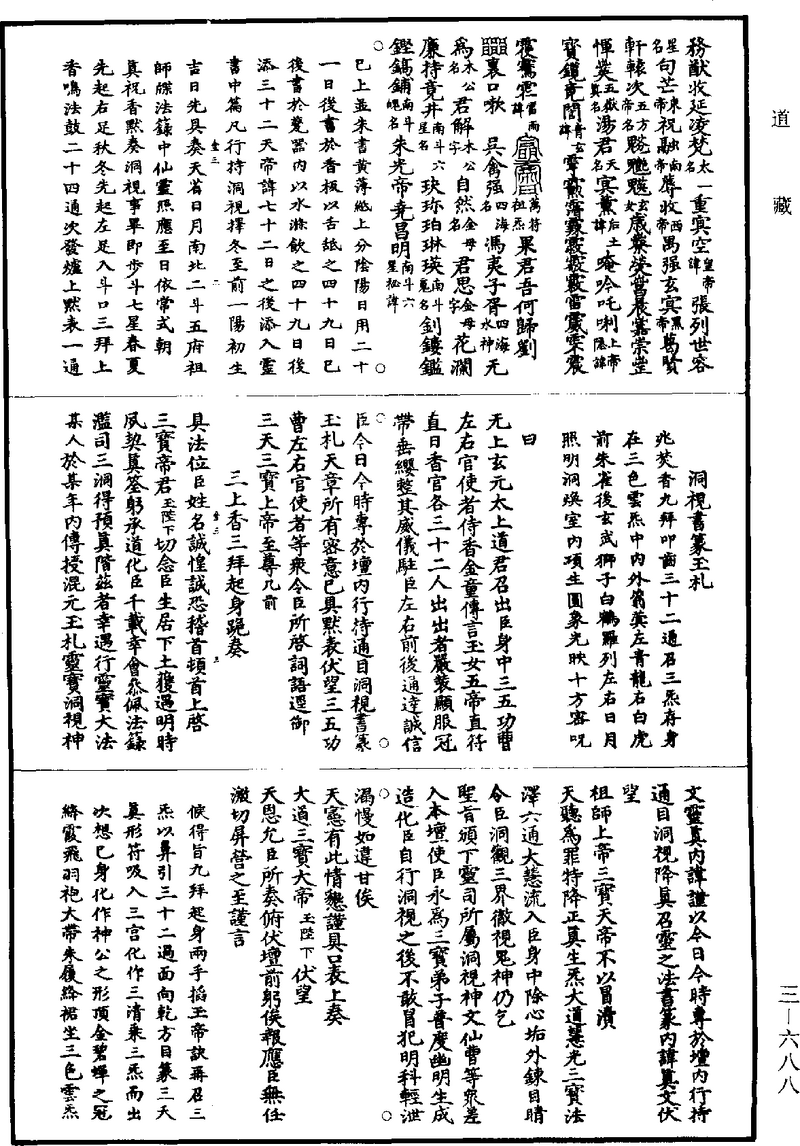 道藏
務猷收延凌梵太名一重寘空皇帝諱張列世容
星名句芒東帝祝融南帝蓐收西帝禺强玄冥黑帝葛賢
軒轅次五方帝名
惲英五嶽真名湯君天名寘薰后土諱唵吟吒唎上帝隱諱
裏口噉 吳禽强四海名馮夷子胥四海水神无
為木公名君解木公字自然金母名君思金母字花瀾
廉持竟井南斗六星名玦珎珀琳瑛南斗魂名釗鏤鑑
鏗鎬鋪南斗魄名朱光帝堯昌明南斗六星秘諱
○
已上並朱書黃薄紙上分陰陽日用二十
一日後書於香板以舌舐之四十九日已
後書於甆器内以水滌飲之四十九日後
添三十二天帝諱七十二日之後添入靈
書中篇凡行持洞視擇冬至前一陽初生
吉日先具奏天省日月南北二斗五府祖
師牒法籙中仙靈照應至日依常式朝
真祝香默奏洞視事畢即步斗七星春夏
先起右足秋冬先起左足入斗口三拜上
香鳴法鼓二十四通次發爐上默表一通
洞視書篆玉札
兆焚香九拜叩齒三十二通召三炁存身
在三色雲炁中内外蓊英左青龍右白虎
前朱雀後玄武獅子白鶴羅列左右日月
照明洞煥室内項生圓象光映十方密呪
曰
无上玄元太上道君召出臣身中三五功曹
左右官使者侍香金童傳言玉女五帝直符
直日香官各三十二人出出者嚴裝顯服冠
帶垂纓整其威儀駐臣左右前後通達誠信
○
臣今日今時專於壇内行持通目洞視書篆
玉札天章所有密意已具默表伏望三五功
曹左右官使者等衆令臣所啓詞語逕御
三天三寶上帝至尊几前
三上香三拜起身跪奏
具法位臣姓名誠惶誠恐稽首頓首上啓
三寶帝君玉陛下切念臣生居下土獲遇明時
夙契真筌躬承道化臣千載幸會忝佩法籙
濫司三洞得預真階兹者幸遇行靈寶大法
某人於某年内傳授混元玉札靈寶洞視神
文靈真内諱謹以今日今時專於壇内行持
通目洞視降真召靈之法書篆内諱真文伏
望
祖師上帝三寶天帝不以冒瀆
天聽為罪特降正真生炁大道慧光三寶法
澤六通大慧流入臣身中除心垢外鍊目睛
令臣洞觀三界徹視鬼神仍乞
聖旨頒下靈司所屬洞視神文仙曹等衆差
入本壇使臣永為三寶弟子普度幽明生成
造化臣自行洞視之後不敢冒犯明科輕泄
○
漏慢如違甘俟
天憲有此情懇謹具口表上奏
大道三寶大帝玉陛下伏望
天恩允臣所奏俯伏壇前躬俟報應臣無任
激切屏營之至謹言
候得旨九拜起身兩手掐玉帝訣再召三
炁以鼻引三十二過面向乾方目篆三天
真形符吸入三宫化作三清乘三炁而出
次想已身化作神公之形頂金碧蟬之冠
絳霞飛羽袍大帶朱履絳裙坐三色雲炁
三—六八八